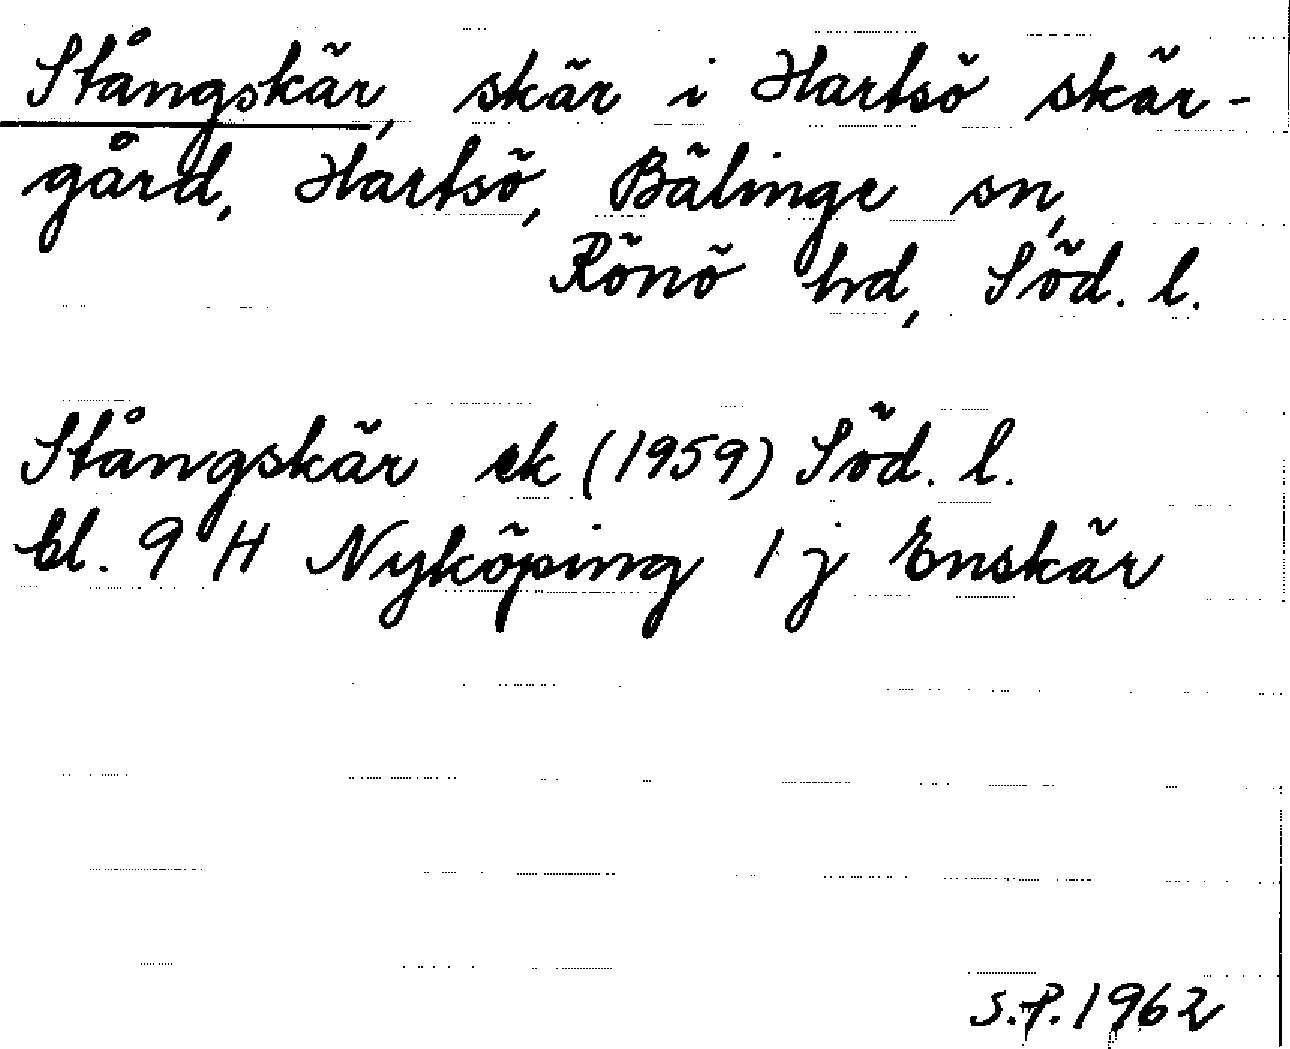 Stångskär, skär i Hartsö skär-
gård, Hartsö, Bälinge sn,
Rönö hd, Söd. l.
Stångskär ek (1959) Söd. l.
bl. 9 H Nyköping 1 j Enskär
S.P. 1962